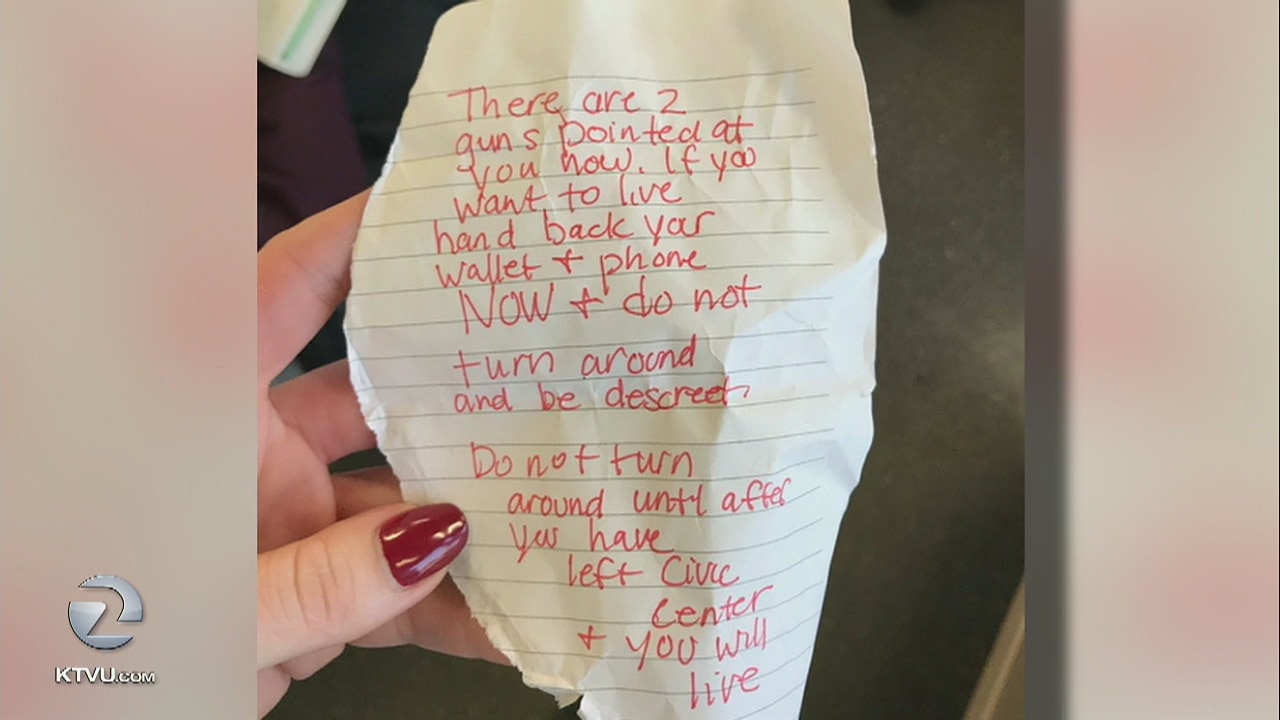 There are 2
guns pointed at
you now. If you
want to live
hand back your
wallet + phone
NOW + do not
turn around
and be descreet
Do not turn
around until after
you have
left Civic
Center
+ you will
live
2
KTVU.COM